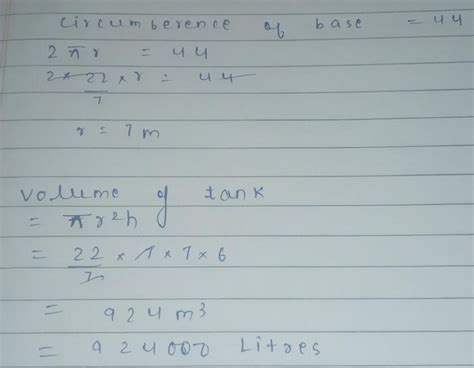 Circumberence of base = 44
2πr = 44
2 × 22/7 × r = 44
r = 7m
Volume of tank
= πr²h
= 22/7 × 7 × 7 × 6
= 924 m³
= 924000 Litres